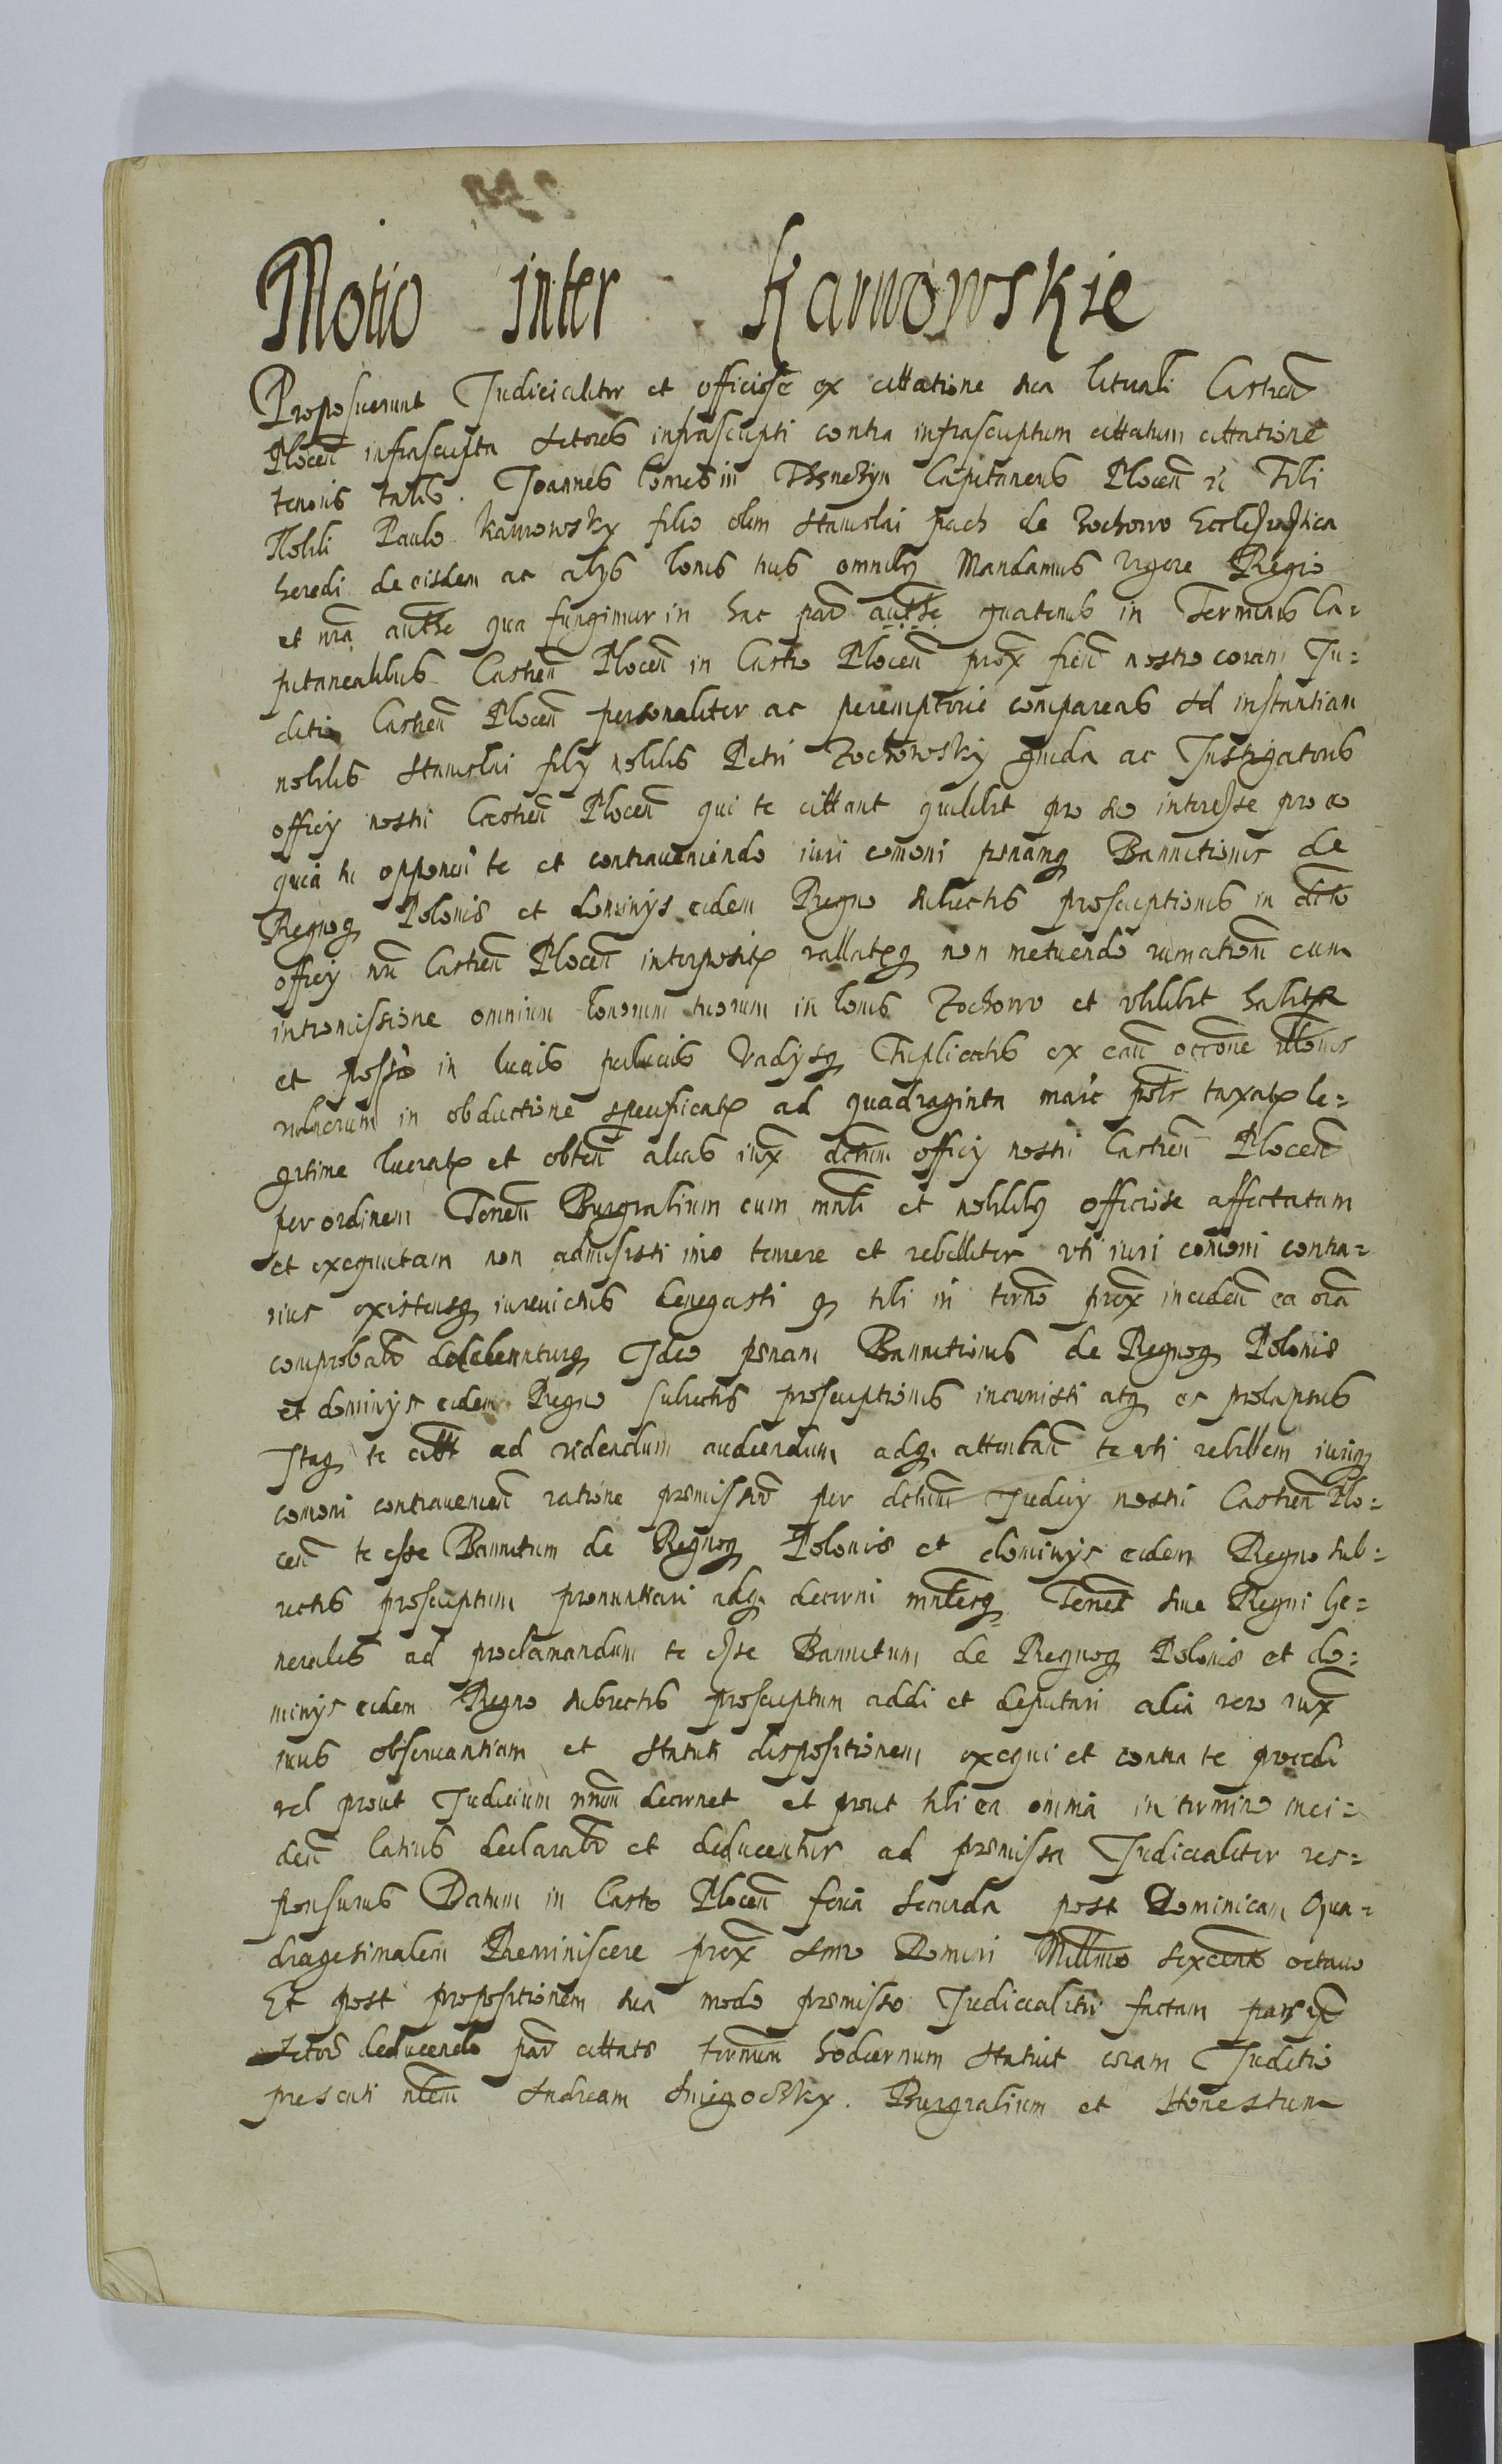 Motio inter Karwowskie
Proposuerunt Judicialiter et officiose ex cittatione sua literali Castren
Plocen infrascripta Actores infrascripti contra infrascriptum cittatum cittatione
tenoris talis. Joannes Comes in Capitaneus Plocen Tibi
Nobili Paulo Karwowsky filio olim Stanislai pach de Zochowo Ecclesiastica
heredi de eisdem ac alys bonis tuis omnibq Mandamus vigore Regio
et nra authe qua fungimur in hac par authe quatenus in Terminis Ca=
pitanealibus Castren Plocen in Castro Plocen prox fien nostro coram Ju=
ditio Castren Plocen personaliter ac peremptorie compareas Ad instantiam
nobilis Stanislai fily nobilis Petri Zochowsky ac Instigatoris
officy nostri Castren Plocen qui te cittant quilibet pro suo interesse pro eo
quia tu opponen te et contraueniendo iuri comoni penamq Bannitionis de
Regnoq Polonie et dominys eidem Regno subiectis proscriptionis in dicto
officy nri Castren Plocen interposit vallatq non metuendo rumation cum
intromissione omnium bonorum tuorum in bonis Zochowo et vbilibet habit
et posso in lucris Vadysq Triplicatis ex cau occone
vulnerum in obductione specificat ad quadraginta marc pols taxat le=
gitime lucrat et obten alias iux dctum officy nostri Castren Plocen
per ordinem Tenen Burgrabium cum mnli et nobilibq officiose affectatam
et exequutam non admisisti imo temere et rebelliter vti iuri comoni contra=
rius existensq iurevictus denegasti q tibi in termo prox inciden ea oia
comprobabr deducenturq Ideo penam Bannitionis de Regnoq Polonie
et dominys eidem Regno subiectis proscriptionis incurristi atq es prolapsus
Itaq te citt ad videndum audiendum adq attentan te vti rebellem iuriq
comoni contrauenien ratione premissor per dctum Judicy nostri Castren Plo=
cen te esse Bannitum de Regnoq Polonie et dominys eidem Regno sub=
iectis proscriptum pronuntiari adq decerni mnlemq Tenen siue Regni Ge=
neralem ad proclamandum te esse Bannitum de Regnoq Polonie et do=
minys eidem Regno subiectis proscriptum addi et deputari alia vero iux
iuris obseruantiam et Statuti dispositionem exequi et contra te procedi
vel prout Judicium nrum decernet et prout tibi ea omnia in termino inci=
den latius declarabr et deducentur ad premissa Judicialiter res=
ponsurus Datum in Castro Plocen feria secunda post Dominicam Qua=
dragesimalem Reminiscere prox Anno Domini Millmo sexcent octauo
Et post propositionem sua modo premisso Judicialiter factam pars
Actor deducendo par cittate termum hodiernum statuit coram Juditio
presenti nblem Andream Burgrabium et Honestum